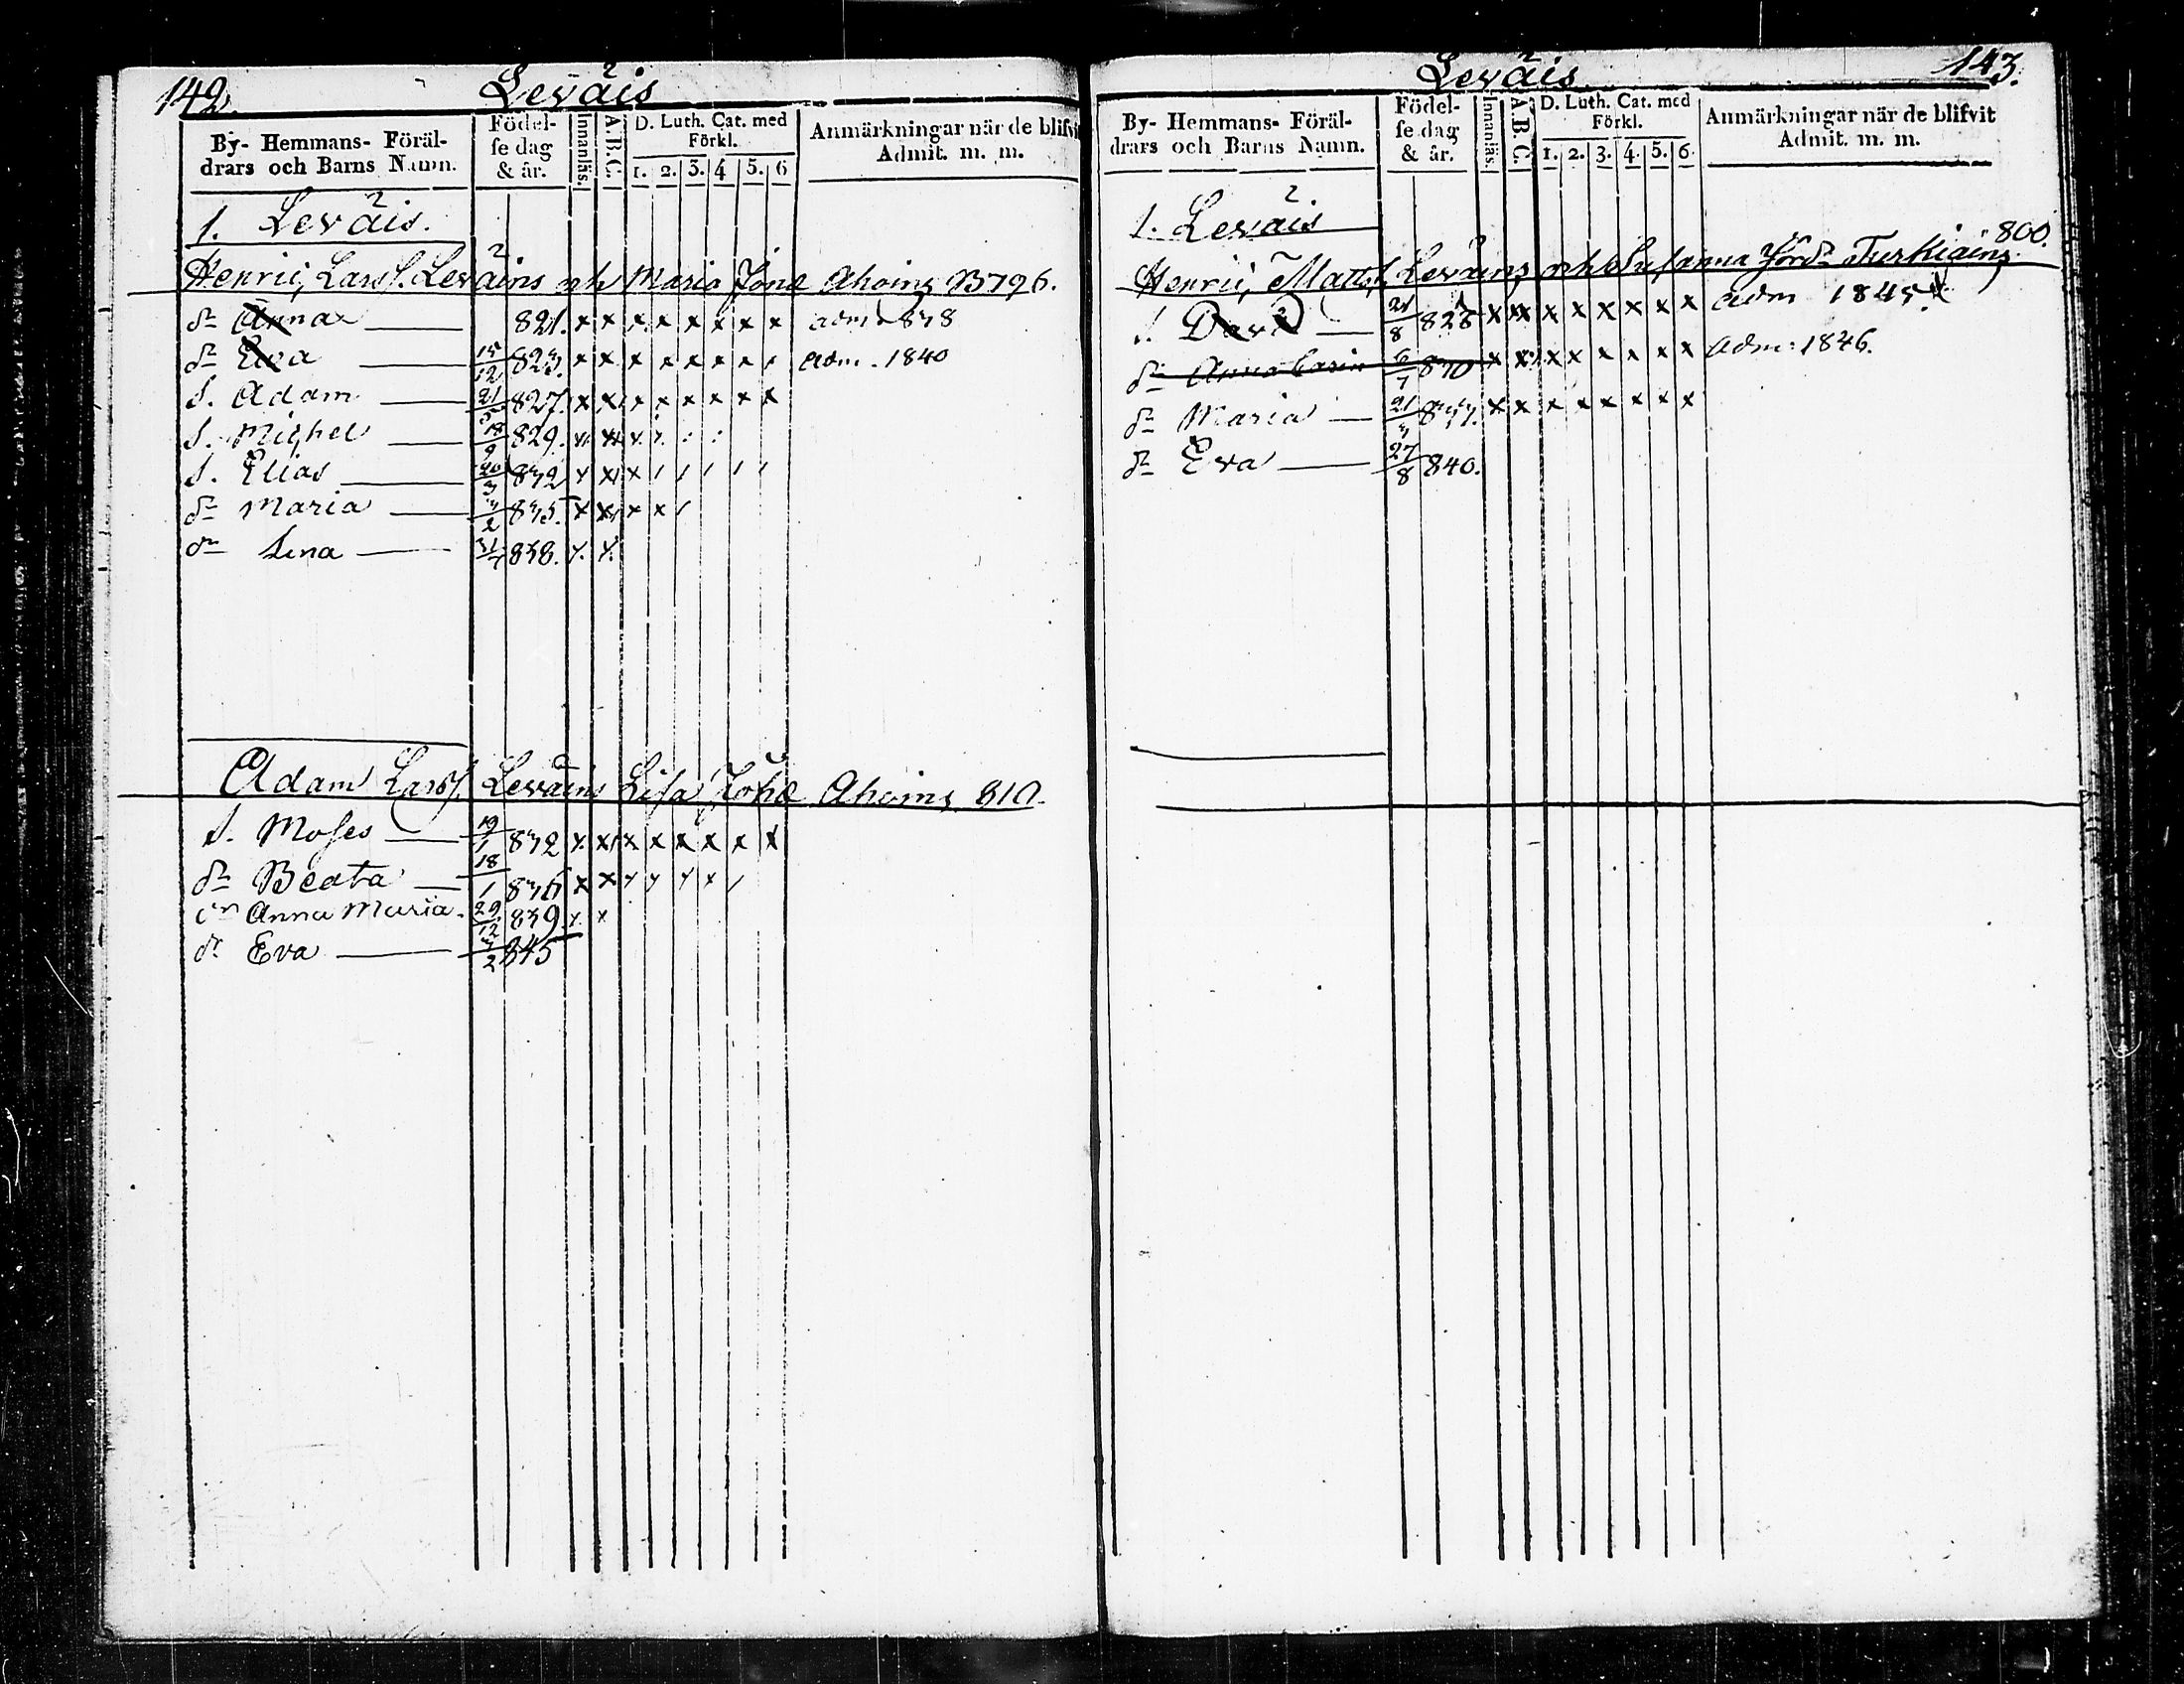 142.
Leväis
By- Hemmans- Föräl-
drars och Barns Namn.
Födel-
se dag
& år.
Innanläs.
A.B.C.
D. Luth. Cat. med
Förkl.
1. 2. 3. 4 5. 6
Anmärkningar när de blifvit
Admit. m. m.
1. Leväis.
Henric Larss. Leväins och Maria Jons Ahoins 796.
dr Anna 821. x x x x x x x x adm 1838
dr Eva 15/12 823. x x x x x x x adm. 1840
S. Adam 21/5 827. x x x x x x x x
S. Michel 18/9 829.
S. Elias 20/3 832
dr Maria 3/2 835. x x x x
dr Lina 838.
Adam Larss. Leväins Lisa Ahoins 810.
S. Moses 19/1 832 x x x x x x x x
dr Beata 18/1 836
dr Anna Maria. 29/12 839.
dr Eva 3/2 845
143.
Leväis
By- Hemmans- Föräl-
drars och Barns Namn.
Födel-
se dag
& år.
Innanläs.
A.B.C.
D. Luth. Cat. med
Förkl.
1. 2. 3. 4. 5. 6.
Anmärkningar när de blifvit
Admit. m. m.
1. Leväis
800.
Henric Matts. Leväins och Susanna Turkiains
S. David 21/8 828 x x x x x x x x adm 1845
dr Anna Carin 6/7 830 x x x x x x x x adm: 1846.
dr Maria 21/3 837. x x x x x x x x
dr Eva 27/8 840.